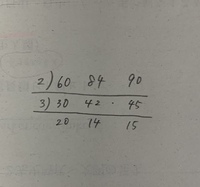 2) 60 84 90
3) 30 42 . 45
20 14 15